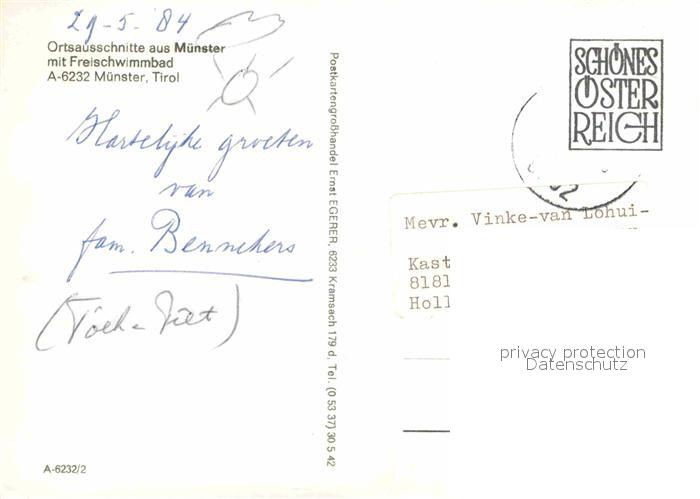 29-5-'84
Ortsausschnitte aus Münster
mit Freischwimmbad
A-6232 Münster, Tirol
Hartelijke groeten
van
fam. Bennekers
Postkartengroßhandel Ernst EGERER, 6233 Kramsach 179 d, Tel. (0 53 37) 30 5 42
A-6232/2
SCHÖNES
ÖSTER
REICH
Mevr. Vinke-van Lohui-
Kast
8181
Holl
privacy protection
Datenschutz